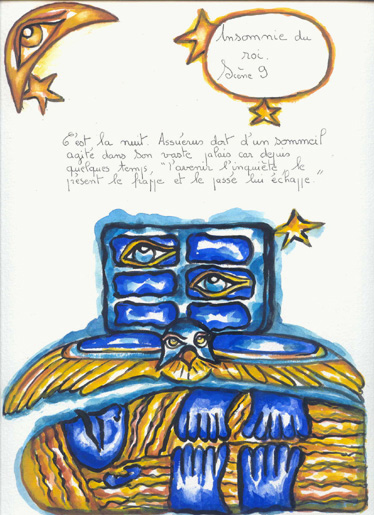 Insomnie du
roi.
Scène 9
C'est la nuit. Assuérus dort d'un sommeil
agité dans son vaste palais car depuis
quelques temps, "l'avenir l'inquiète, le
présent le frappe et le passé lui échappe."